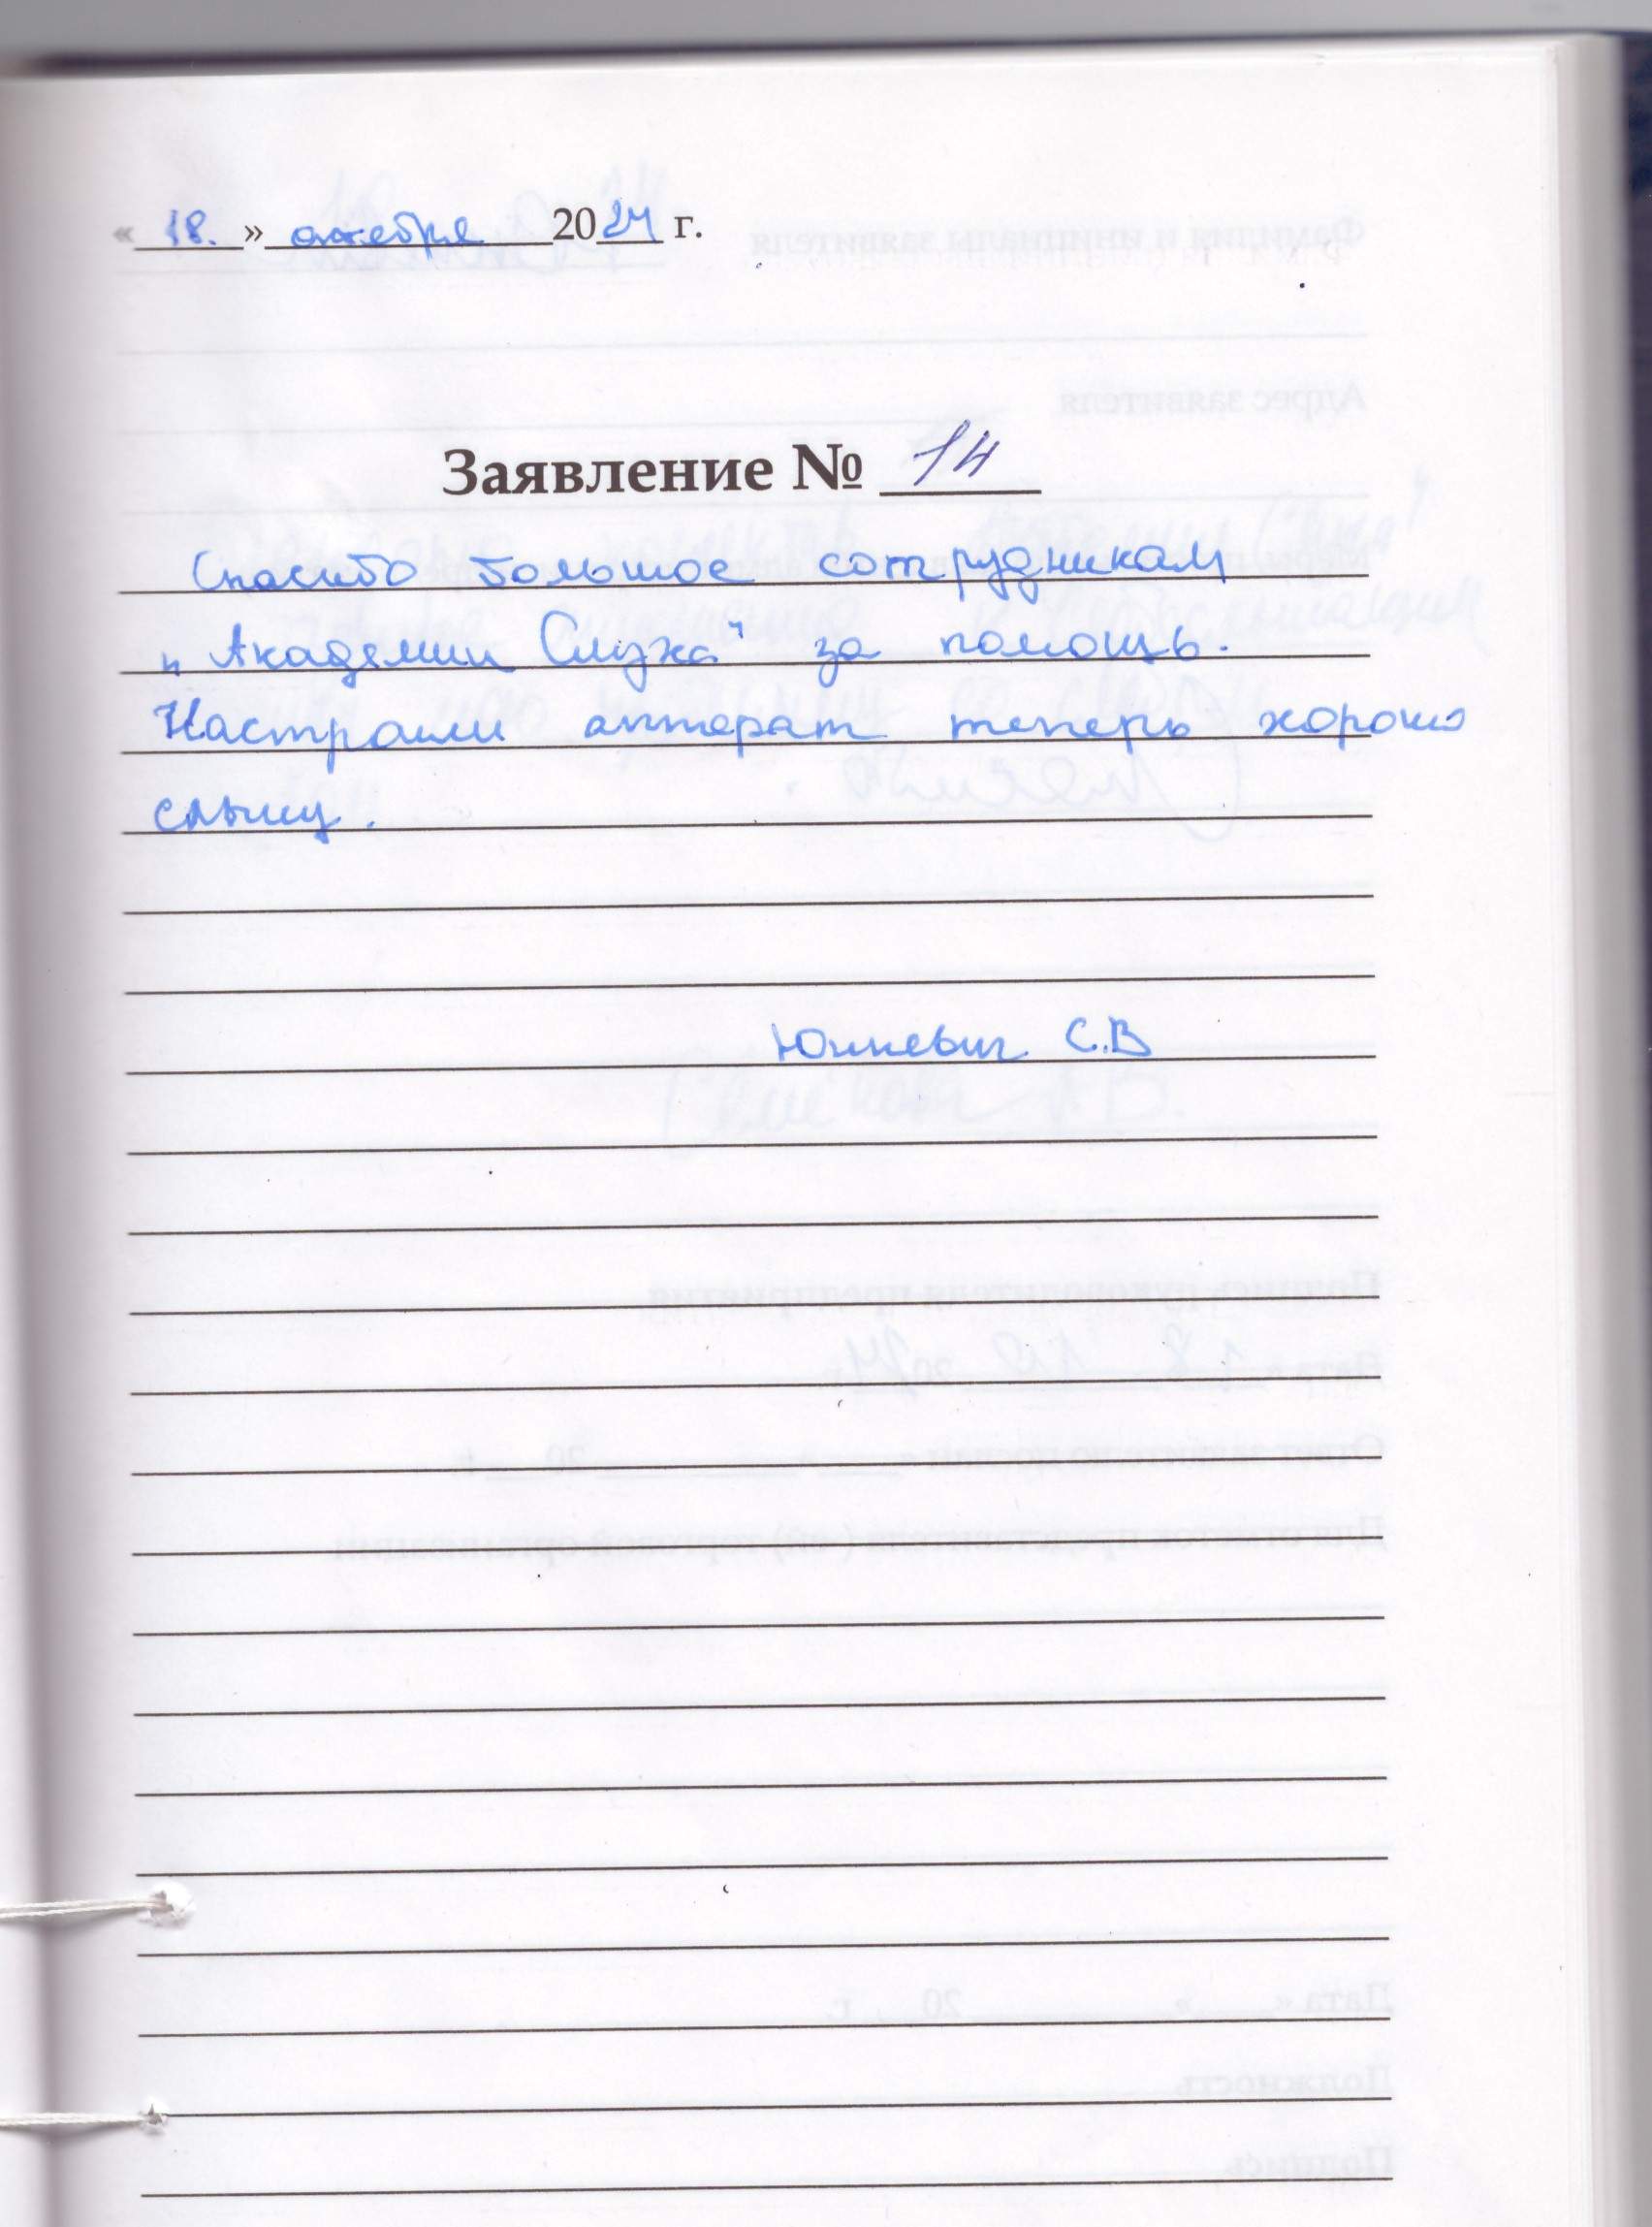 « 18. » октября 2024 г.
Заявление № 14
Спасибо большое сотрудникам
"Академии Слуха" за помощь.
Настроили аппарат теперь хорошо
слышу.
С.В